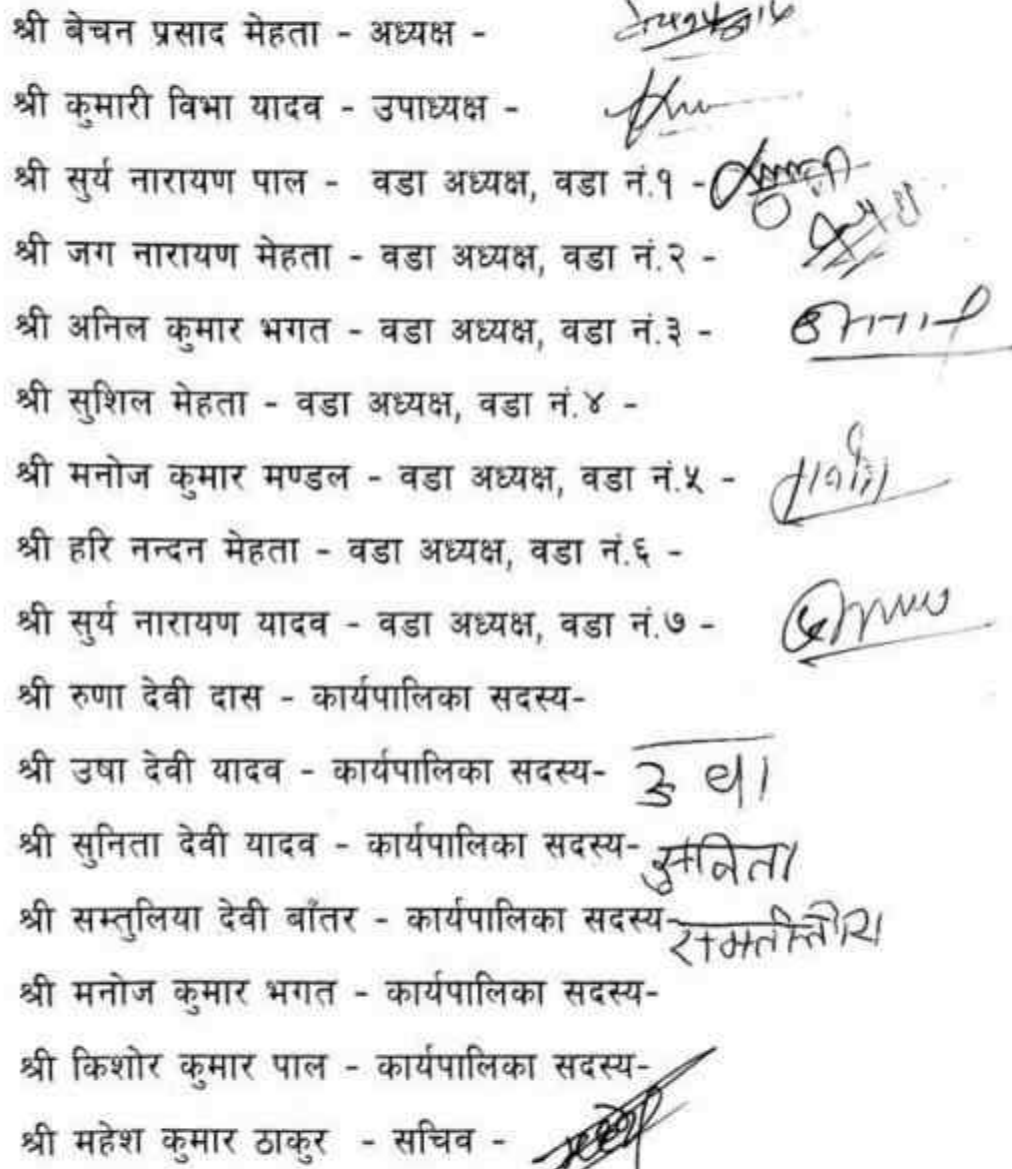 श्री बेचन प्रसाद मेहता - अध्यक्ष -
श्री कुमारी विभा यादव - उपाध्यक्ष -
श्री सुर्य नारायण पाल - वडा अध्यक्ष, वडा नं.१ -
श्री जग नारायण मेहता - वडा अध्यक्ष, वडा नं.२ -
श्री अनिल कुमार भगत - वडा अध्यक्ष, वडा नं.३ -
श्री सुशिल मेहता - वडा अध्यक्ष, वडा नं.४ -
श्री मनोज कुमार मण्डल - वडा अध्यक्ष, वडा नं.५ -
श्री हरि नन्दन मेहता - वडा अध्यक्ष, वडा नं.६ -
श्री सुर्य नारायण यादव - वडा अध्यक्ष, वडा नं.७ -
श्री रुणा देवी दास - कार्यपालिका सदस्य-
श्री उषा देवी यादव - कार्यपालिका सदस्य- उषा
श्री सुनिता देवी यादव - कार्यपालिका सदस्य- सुनिता
श्री सम्तुलिया देवी बाँतर - कार्यपालिका सदस्य-
श्री मनोज कुमार भगत - कार्यपालिका सदस्य-
श्री किशोर कुमार पाल - कार्यपालिका सदस्य-
श्री महेश कुमार ठाकुर - सचिव -